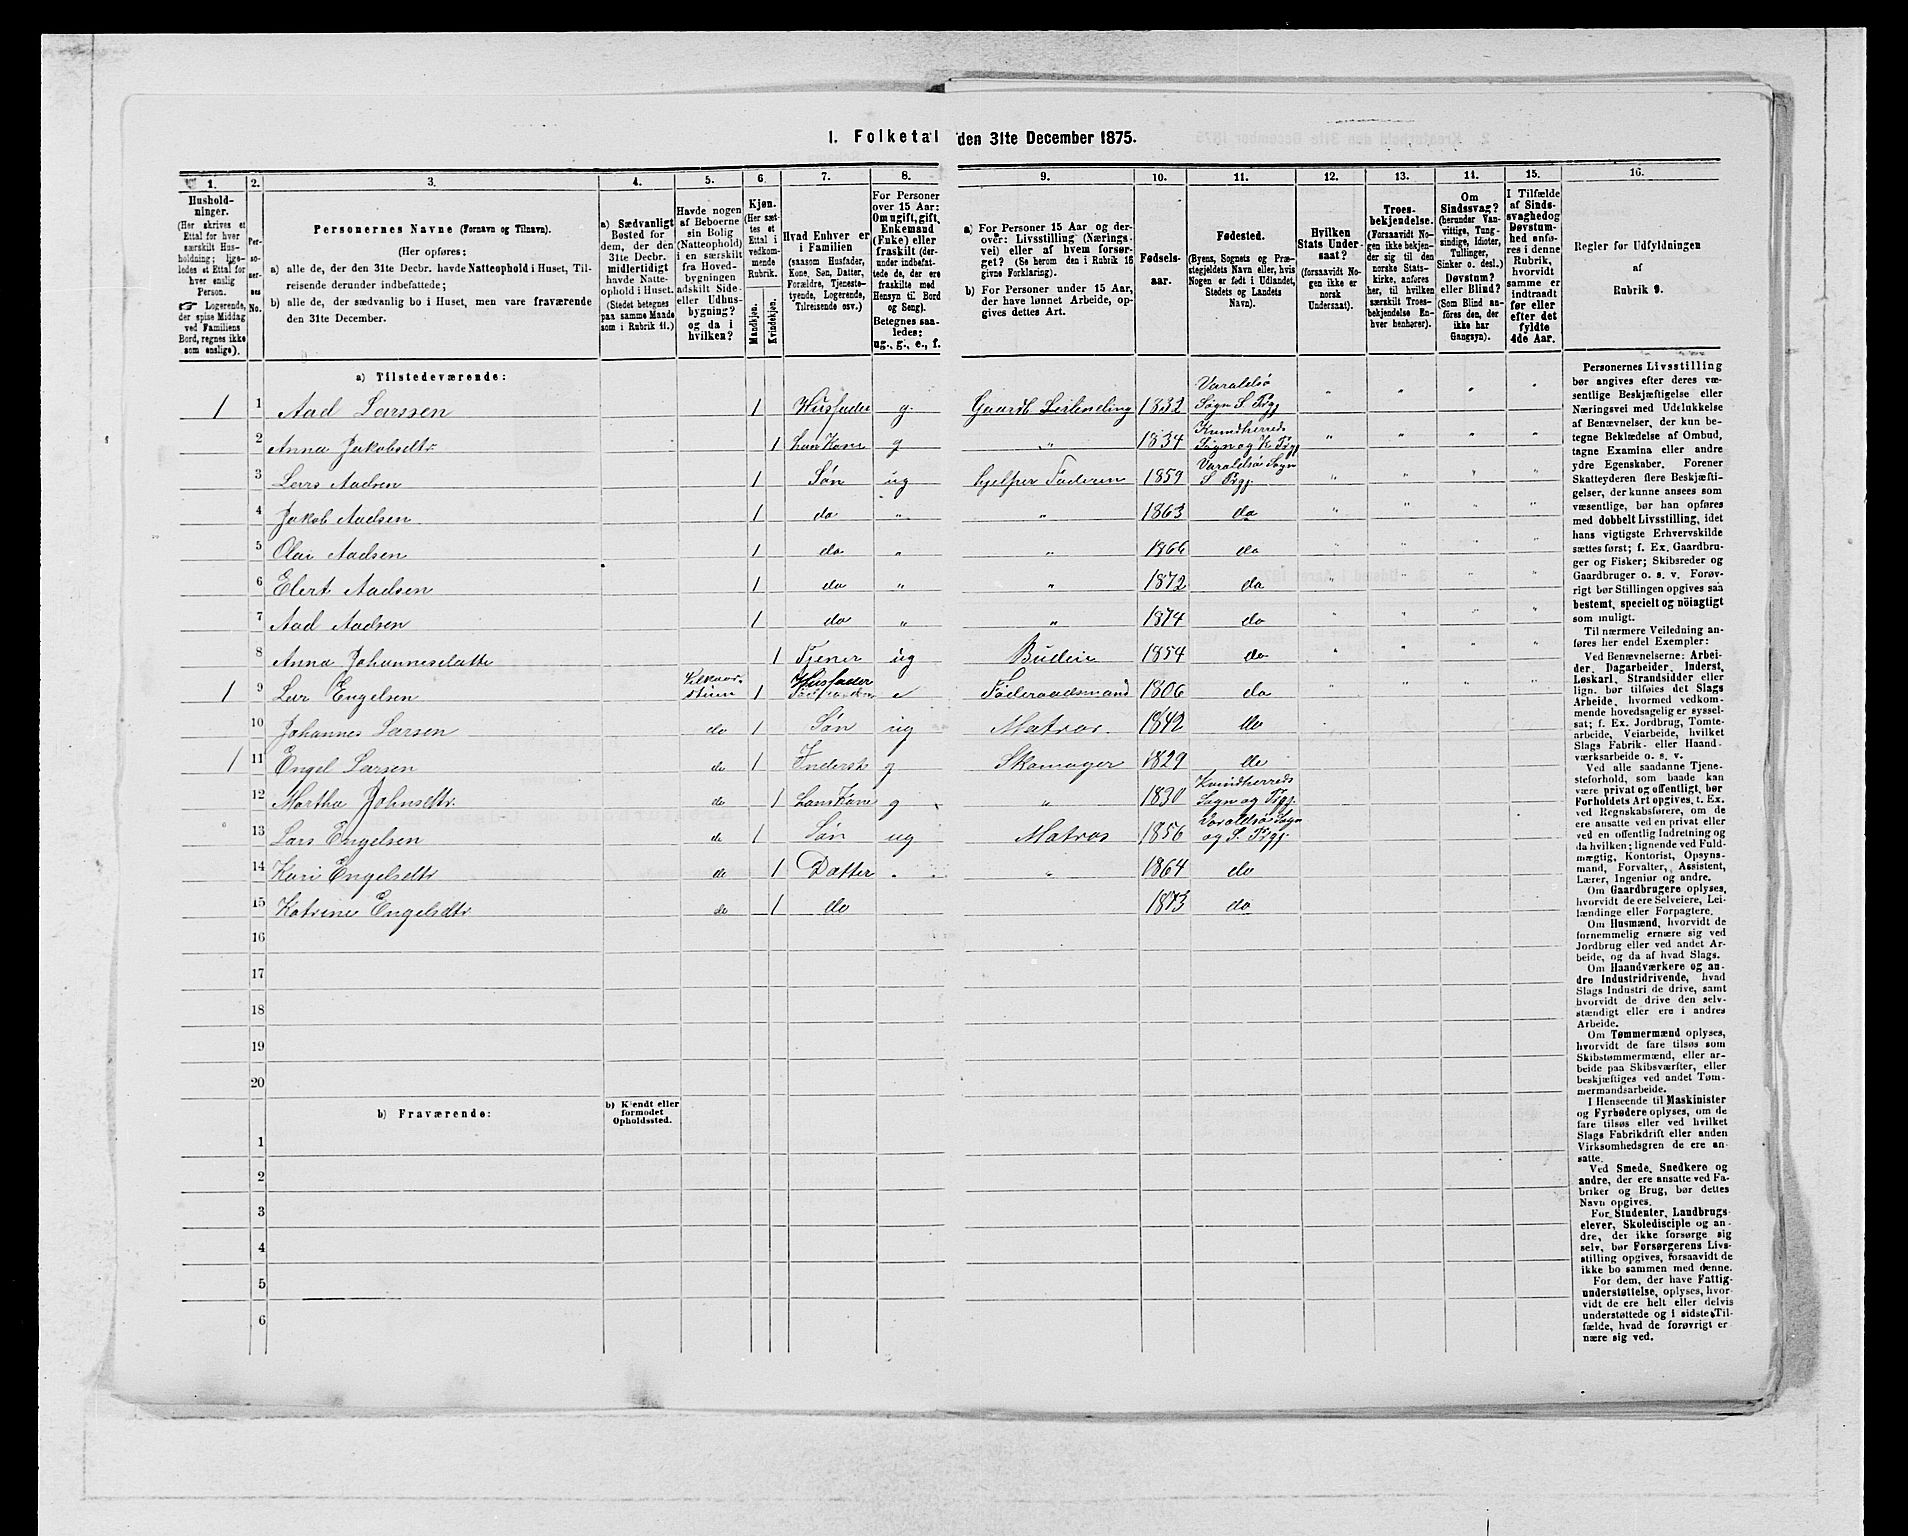 1. Folketal den 31te December 1875.
1. 2. 3. 4. 5. 6. 7. 8. 9. 10. 11. 12. 13. 14. 15. 16.
Hushold-
ninger.
(Her skrives et
Ettal for hver
særskilt Hus-
holdning; lige-
ledes et Ettal for
hver enslig
Person.
☞ Logerende,
der spise Middag
ved Familiens
Bord, regnes ikke
som enslige).
Per-
so-
ner-
nes
No.
Personernes Navne (Fornavn og Tilnavn).
(Her opføres:
a) alle de, der den 31te Decbr. havde Natteophold i Huset, Til-
reisende derunder indbefattede;
b) alle de, der sædvanlig bo i Huset, men vare fraværende
den 31te December.
a) Sædvanligt
Bosted for
dem, der den
31te Decbr.
midlertidigt
havde Natte-
ophold i Huset.
(Stedet betegnes
paa samme Maade
som i Rubrik 11.)
Havde nogen
af Beboerne
sin Bolig
(Natteophold)
i en særskilt
fra Hoved-
bygningen
adskilt Side-
eller Udhus-
bygning?
og da i
hvilken?
Kjøn.
(Her sæt-
tes et
Ettal i
vedkom-
mende
Rubrik.
Mandkjøn.
Kvindekjøn.
Hvad Enhver er
i Familien
(saasom Husfader,
Kone, Søn, Datter,
Forældre, Tjeneste-
tyende, Logerende,
Tilreisende osv.)
For Personer
over 15 Aar:
Om ugift, gift,
Enkemand
(Enke) eller
fraskilt (der-
under indbefat-
tede de, der ere
fraskilte med
Hensyn til Bord
og Seng).
Betegnes saa-
ledes:
ug., g., e., f.
a) For Personer 15 Aar og der-
over: Livsstilling (Nærings-
vei) eller af hvem forsør-
get? (Se herom den i Rubrik 16
givne Forklaring).
b) For Personer under 15 Aar,
der have lønnet Arbeide, op-
gives dettes Art.
Fødsels-
aar.
Fødested.
(Byens, Sognets og Præ-
stegjeldets Navn eller, hvis
Nogen er født i Udlandet,
Stedets og Landets
Navn).
Hvilken
Stats Under-
saat?
(forsaavidt No-
gen ikke er
norsk
Undersaat).
Troes-
bekjendelse.
(Forsaavidt No-
gen ikke bekjen-
der sig til den
norske Stats-
kirke, anføres
her, til hvilken
særskilt Troes-
bekjendelse En-
hver henhører).
Om
Sindssvag?
(herunder Van-
vittige, Tung-
sindige, Idioter,
Tullinger,
Sinker o. desl.)
Døvstum?
eller Blind?
(Som Blind an-
føres den, der
ikke har
Gangsyn).
I Tilfælde
af Sinds-
svaghed og
Døvstum-
hed anfø-
res i denne
Rubrik,
hvorvidt
samme er
indtraadt
før eller
efter det
fyldte
4de Aar.
Regler for Udfyldningen
af
Rubrik 9.
a) Tilstedeværende:
1 1 Aad Larssen 1 Husfader g. Gaardb Leilending 1832 Varaldsø Sogn S Prgj
2 Anna Jakobsdtr 1 hans Kone g " 1834 Kvindherreds Sogn og K. Prgj
3 Lars Aadsen 1 Søn ug hjelper Faderen 1859 Varaldsø Sogn S Prgj.
4 Jakob Aadsen 1 do " " 1863 do
5 Olai Aadsen 1 do " " 1866 do
6 Elert Aadsen 1 do " " 1872 do
7 Aad Aadsen 1 do " " 1874 do
8 Anna Johannesdatte 1 Tjener ug Budeie 1854 do
1 9 Lar Engelsen 1 Husfader e Föderaadsmand 1806 do
10 Johannes Larsen do 1 Søn ug Matros. 1842 do
1 11 Engel Larsen do 1 Inderst g Skomager 1829 do
12 Martha Johnsdtr. do 1 Hans Kone g " 1830 Kvindherreds Sogn og Prgj.
13 Lars Engelsen do 1 Søn ug Matros 1856 Varaldsø Sogn og S. Prgj.
14 Kari Engelsdtr do 1 Datter " " 1864 do
15 Katrine Engelsdtr do 1 do 1873 do
16
17
18
19
20
b) Fraværende:
b) Kjendt eller
formodet
Opholdssted.
1
2
3
4
5
6
Personernes Livsstilling
bør angives efter deres væ-
sentlige Beskjæftigelse eller
Næringsvei med Udelukkelse
af Benævnelser, der kun be-
tegne Beklædelse af Ombud,
tagne Examina eller andre
ydre Egenskaber. Forener
Skatteyderen flere Beskjæfti-
gelser, der kunne ansees som
væsentlige, bør han opføres
med dobbelt Livsstilling, idet
hans vigtigste Erhvervskilde
sættes først; f. Ex. Gaardbru-
ger og Fisker; Skibsreder og
Gaardbruger o. s. v. Forøv-
rigt bør Stillingen opgives saa
bestemt, specielt og nöiagtigt
som muligt.
Til nærmere Veiledning an-
føres her endel Exempler:
Ved Benævnelserne: Arbei-
der, Dagarbeider, Inderst,
Løskarl, Strandsidder eller
lign. bør tilføies det Slags
Arbeide, hvormed vedkom-
mende hovedsagelig er syssel-
sat; f. Ex. Jordbrug, Tomte-
arbeide, Veiarbeide, hvilket
Slags Fabrik- eller Haand-
værksarbeide o. s. v.
Ved alle saadanne Tjene-
steforhold, som baade kan
være privat og offentligt, bør
Forholdets Art opgives, t. Ex.
ved Regnskabsførere, om de
ere ansatte ved en privat eller
ved en offentlig Indretning og
da hvilken; lignende ved Fuld-
mægtig, Kontorist, Opsyns-
mand, Forvalter, Assistent,
Lærer, Ingeniør og andre.
Om Gaardbrugere oplyses,
hvorvidt de ere Selveiere, Lei-
lændinge eller Forpagtere.
Om Husmænd, hvorvidt de
fornemmelig ernære sig ved
Jordbrug eller ved andet Ar-
beide, og da af hvad Slags.
Om Haandværkere og an-
dre Industridrivende, hvad
Slags Industri de drive, samt
hvorvidt de drive den selv-
stændigt eller ere i andres
Arbeide.
Om Tømmermænd oplyses,
hvorvidt de fare tilsøs som
Skibstømmermænd, eller ar-
beide paa Skibsværfter, eller
beskjæftiges ved andet Tøm-
mermandsarbeide.
I Henseende til Maskinister
og Fyrbødere oplyses, om de
fare tilsøs eller ved hvilket
Slags Fabrikdrift eller anden
Virksomhedsgren de ere an-
satte.
Ved Smede, Snedkere og
andre, der ere ansatte ved Fa-
briker og Brug, bør dettes
Navn opgives.
For Studenter, Landbrugs-
elever, Skoledisciple og an-
dre, der ikke forsørge sig
selv, bør Forsørgerens Livs-
stilling opgives, forsaavidt de
ikke bo sammen med denne.
For dem, der have Fattig-
understøttelse, oplyses, hvor-
vidt de ere helt eller delvis
understøttede og i sidste Til-
fælde, hvad de forøvrigt er
nære sig ved.